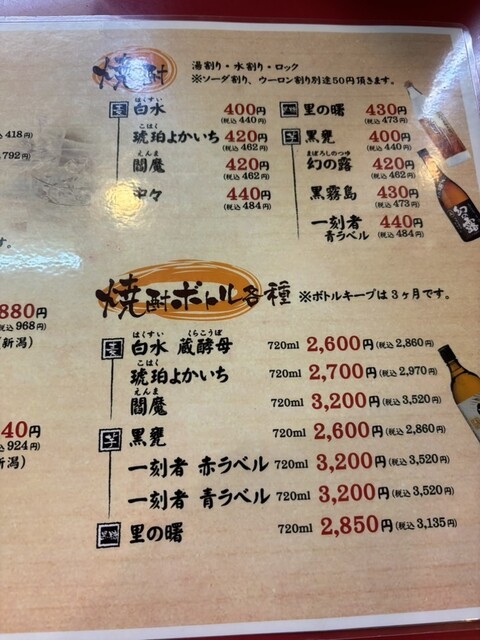 焼酎
湯割り・水割り・ロック
※ソーダ割り、ウーロン割り別途50円頂きます。
麦
はくすい
白水 400円
(税込 440)
こはく
琥珀よかいち 420円
(税込 462)
えんま
閻魔 420円
(税込 462)
中々 440円
(税込 484)
里の曙 430円
(税込 473)
芋
黒甕 400円
(税込 440)
まぼろしのつゆ
幻の露 420円
(税込 462)
黒霧島 430円
(税込 473)
一刻者
青ラベル 440円
(税込 484)
幻の露
税込 418円)
,792円)
す。
880円
税込 968円)
(新潟)
40円
込 924円)
新潟)
焼酎ボトル各種 ※ボトルキープは3ヶ月です。
麦
はくすい くらこうぼ
白水 蔵酵母 720ml 2,600円(税込 2,860円)
こはく
琥珀よかいち 720ml 2,700円(税込 2,970円)
えんま
閻魔 720ml 3,200円(税込 3,520円)
芋
黒甕 720ml 2,600円(税込 2,860円)
一刻者 赤ラベル 720ml 3,200円(税込 3,520円)
一刻者 青ラベル 720ml 3,200円(税込 3,520円)
里の曙 720ml 2,850円(税込 3,135円)